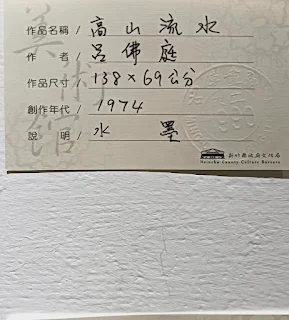 作品名稱 / 高山流水
作者 / 呂佛庭
作品尺寸 / 138×69公分
創作年代 / 1974
說明 / 水墨
美術館
新竹縣政府文化局
Hsinchu County Culture Bureau